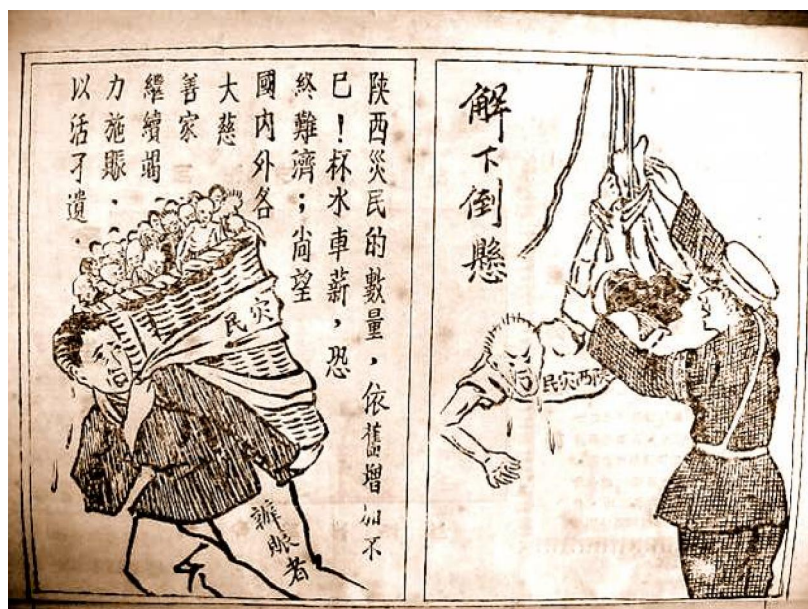 解下倒懸
陝西災民
陝西災民的數量，依舊增加不
已！杯水車薪，恐
終難濟；尚望
國內外各
大慈
善家
繼續竭
力施賑．
以活孑遺．
災民
辦賑者